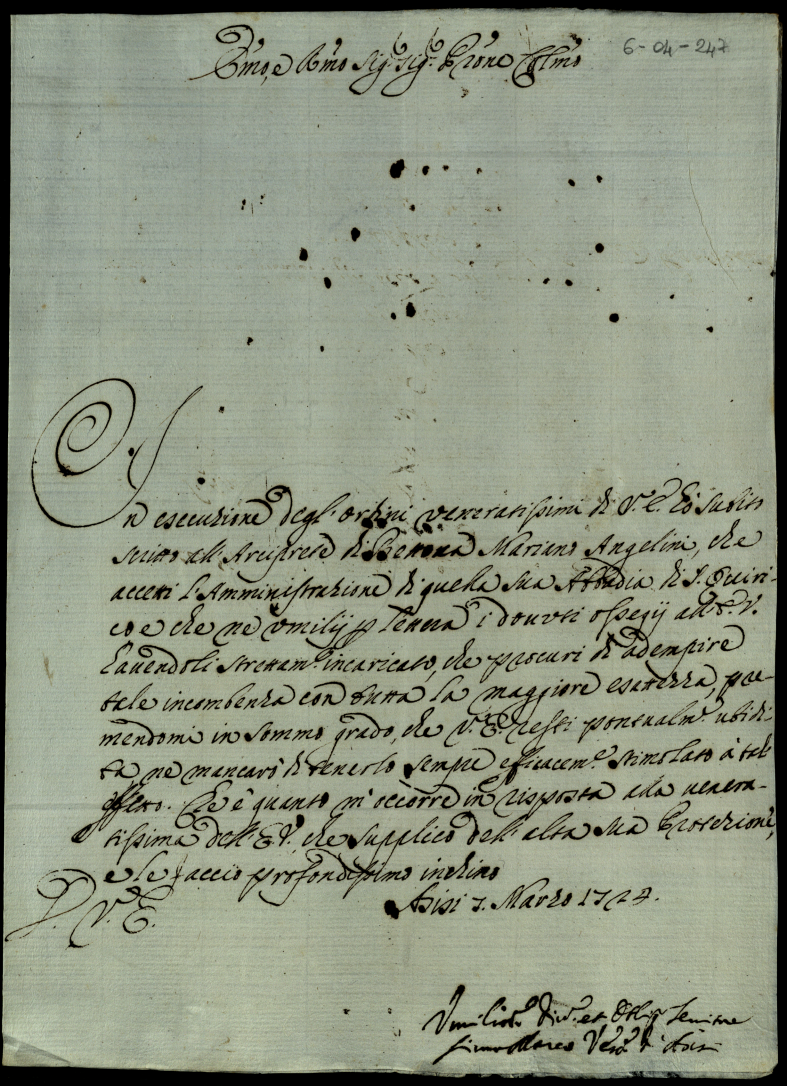 6-04-247
Emo, e Rmo Sig.r Sig.r Prone Colmo
In esecuzione degl'ordini veneratissimi di V.E. hò subito
scritto all'Arciprete di Bettona Mariano Angelini, che
accetti l'Amministrazione di quella sua Abbadia di S. Quiri-
co e che ne umilij per lettera i dovuti ossequij all'E.V.
havendoli strettam.te incaricato, che procuri di adempire
tale incombenza con tutta la maggiore esattezza, pre-
mendomi in sommo grado, che V.E. resti pontualm.te ubidi-
ta ne mancarò di tenerlo sempre efficacem.te stimolato à tale
effetto. Che è quanto m'occorre in risposta alla venera-
tissima dell'E.V., che supplico dell'alta sua Protezione,
e le faccio profondissimo inchino
D. V. E.
Asisi 7. Marzo 1724.
Umiliss.o Div.o et Obblig.o Servitore
Vesc.o d'Asisi